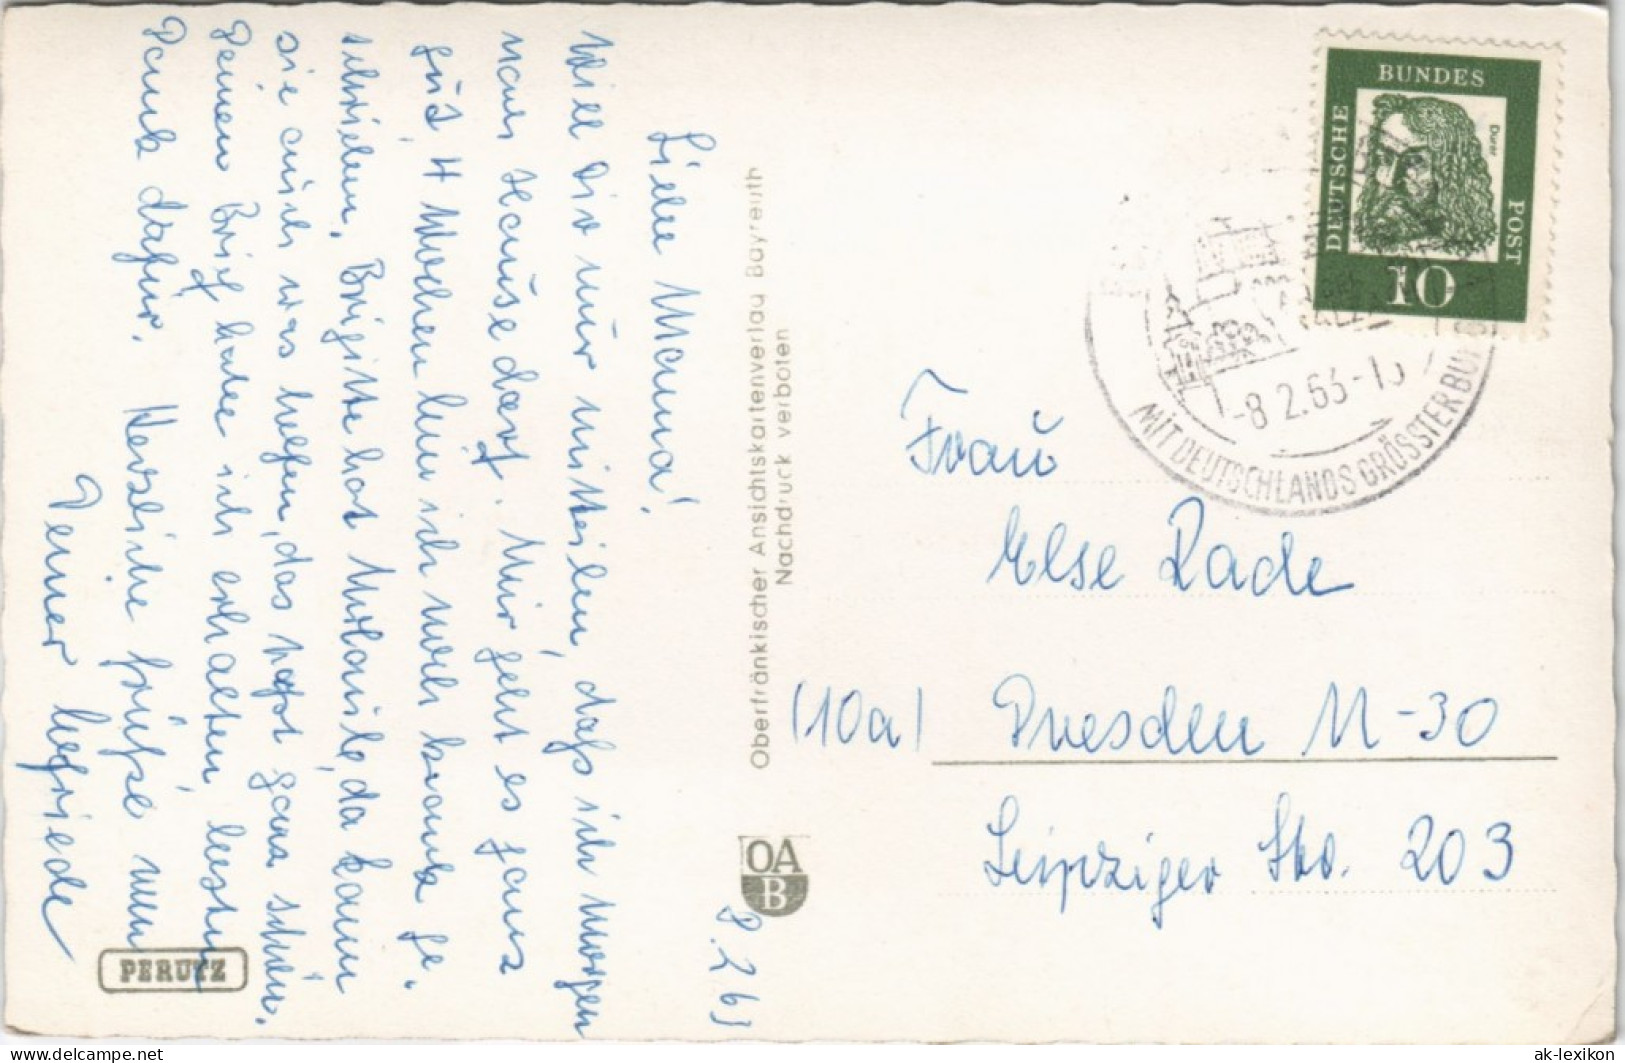 8.2.63
Liebe Mamma!
Will Dir nur mitteilen, daß ich morgen
nach Hause darf. Mir geht es ganz
gut, 4 Wochen bin ich noch krank ge-
schrieben. Brigitte hat Urlaub, da kann
sie auch was helfen, das paßt ganz schön.
Deinen Brief habe ich erhalten, besten
Dank dafür. Herzliche Grüße nun
Deiner
PERUTZ
Oberfränkischer Ansichtskartenverlag Bayreuth
Nachdruck verboten
OA
B
DEUTSCHE
BUNDES
POST
Dürer
10
-8.2.63-
MIT DEUTSCHLANDS GRÖSSTER BURG
Frau
Else Rade
(10a) Dresden N-30
Leipziger Str. 203
ak-lexikon
delcampe.net